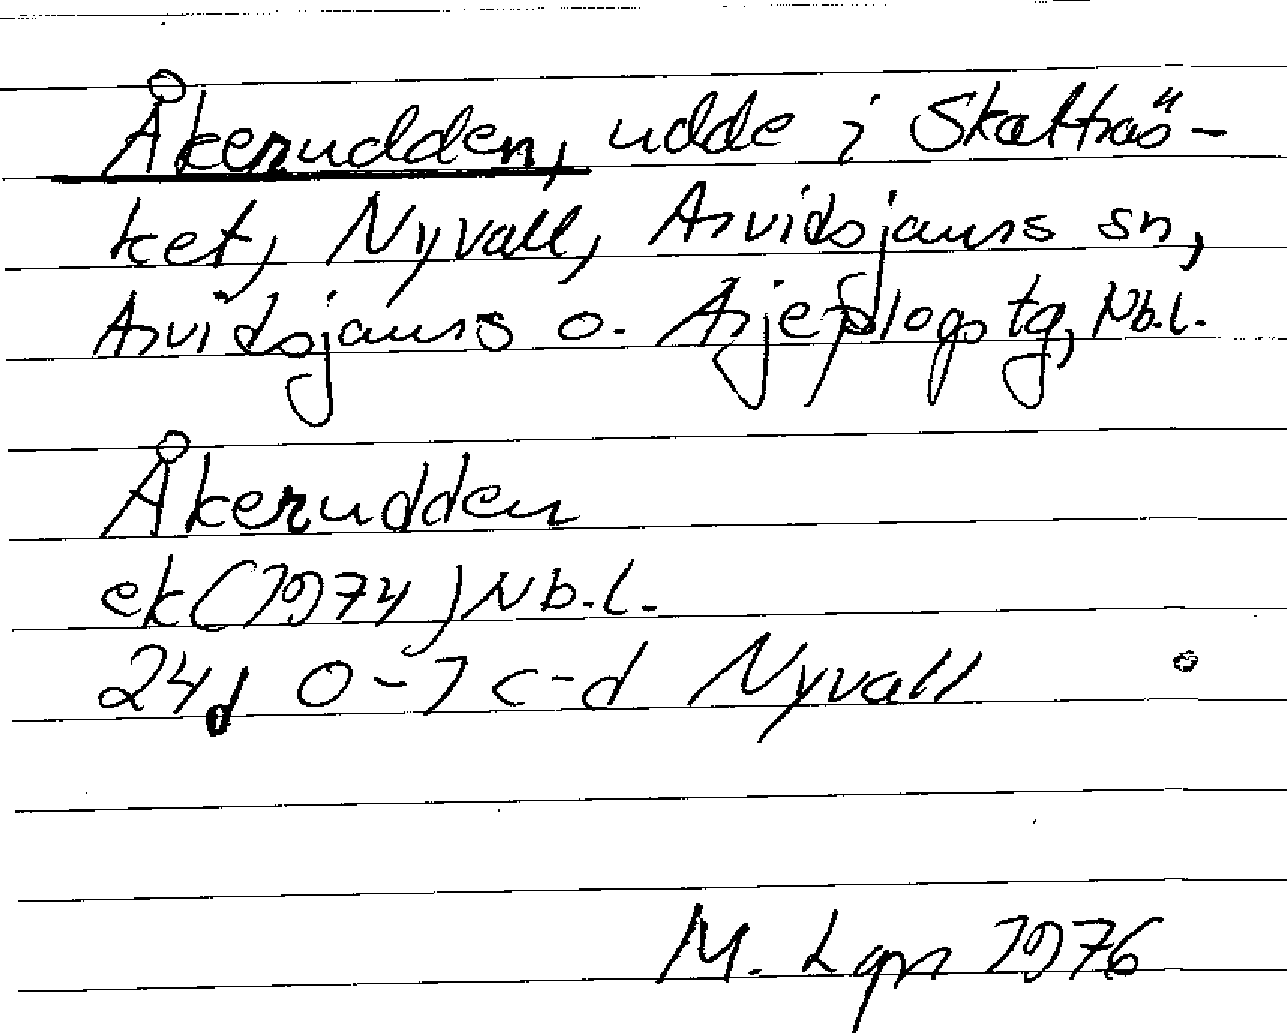 Åkerudden, udde i Skatträs-
ket, Nyvall, Arvidsjaurs sn,
Arvidsjaurs o. Arjeplogs tg, Nb.l.
Åkerudden
ek (1974) Nb.l.
24d 0-1 c-d Nyvall
M. Lgn 1976